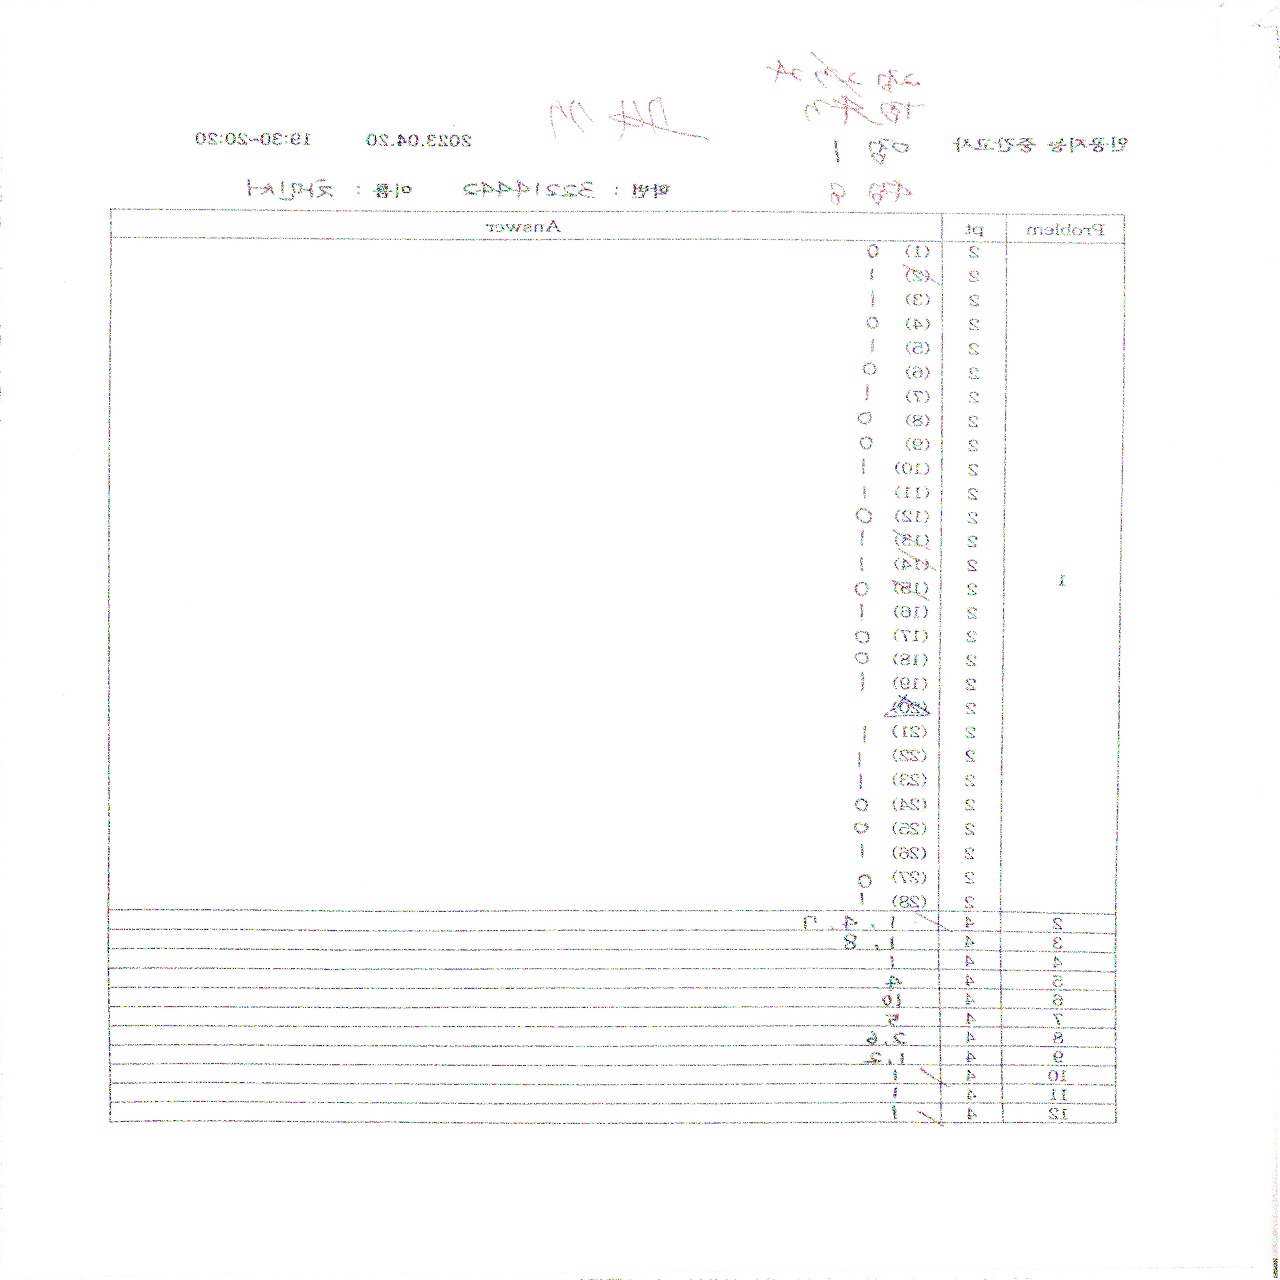 인공지능 중간고사 2023.04.20 19:30~20:20
학번 : 32214442 이름 : 곽민서
Problem pt Answer
1
2 (1) 0
2 (2) 1
2 (3) 1
2 (4) 0
2 (5) 1
2 (6) 0
2 (7) 1
2 (8) 0
2 (9) 0
2 (10) 1
2 (11) 1
2 (12) 0
2 (13) 1
2 (14) 1
2 (15) 0
2 (16) 1
2 (17) 0
2 (18) 0
2 (19) 1
2 (20)
2 (21) 1
2 (22) 1
2 (23) 1
2 (24) 0
2 (25) 0
2 (26) 1
2 (27) 0
2 (28) 1
2 4 1, 4, 7
3 4 1, 8
4 4 1
5 4 4
6 4 10
7 4 5
8 4 2.6
9 4 1.2
10 4 1
11 4 1
12 4 1